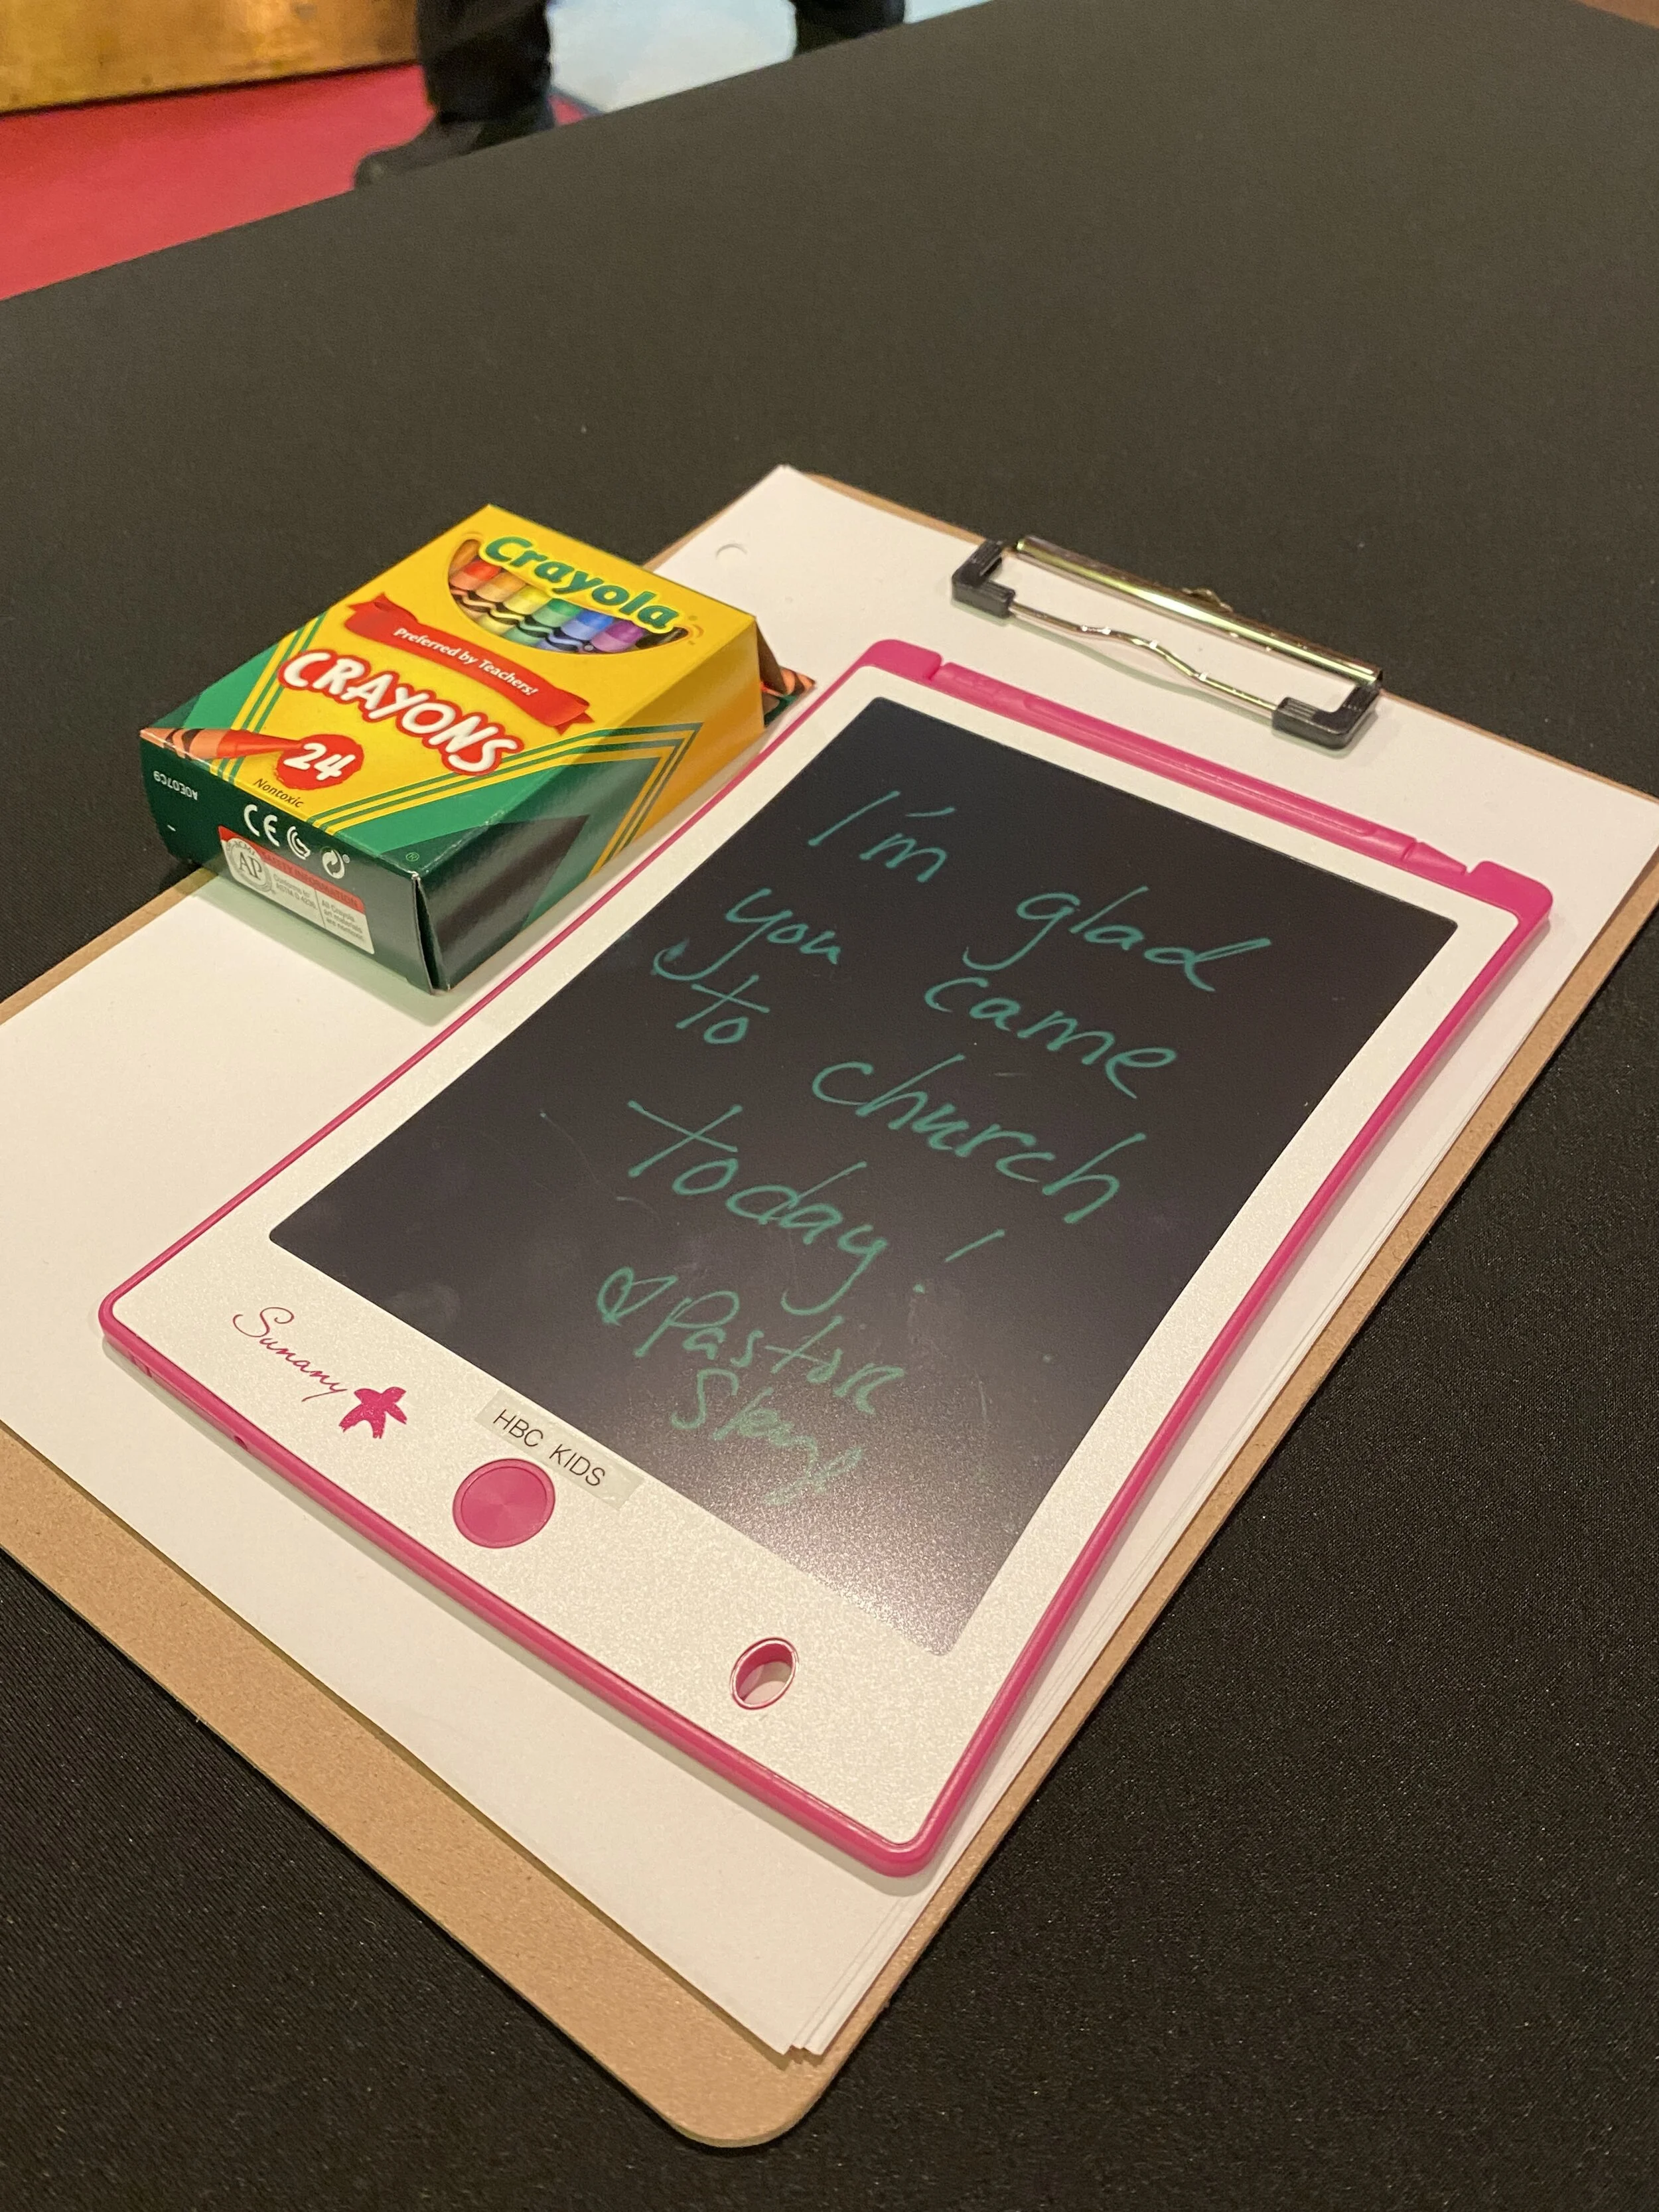 Crayola
Preferred by Teachers!
CRAYONS
24
Nontoxic
CE
AP
I'm glad
you came
to church
today!
Pastor
Sunany
HBC KIDS